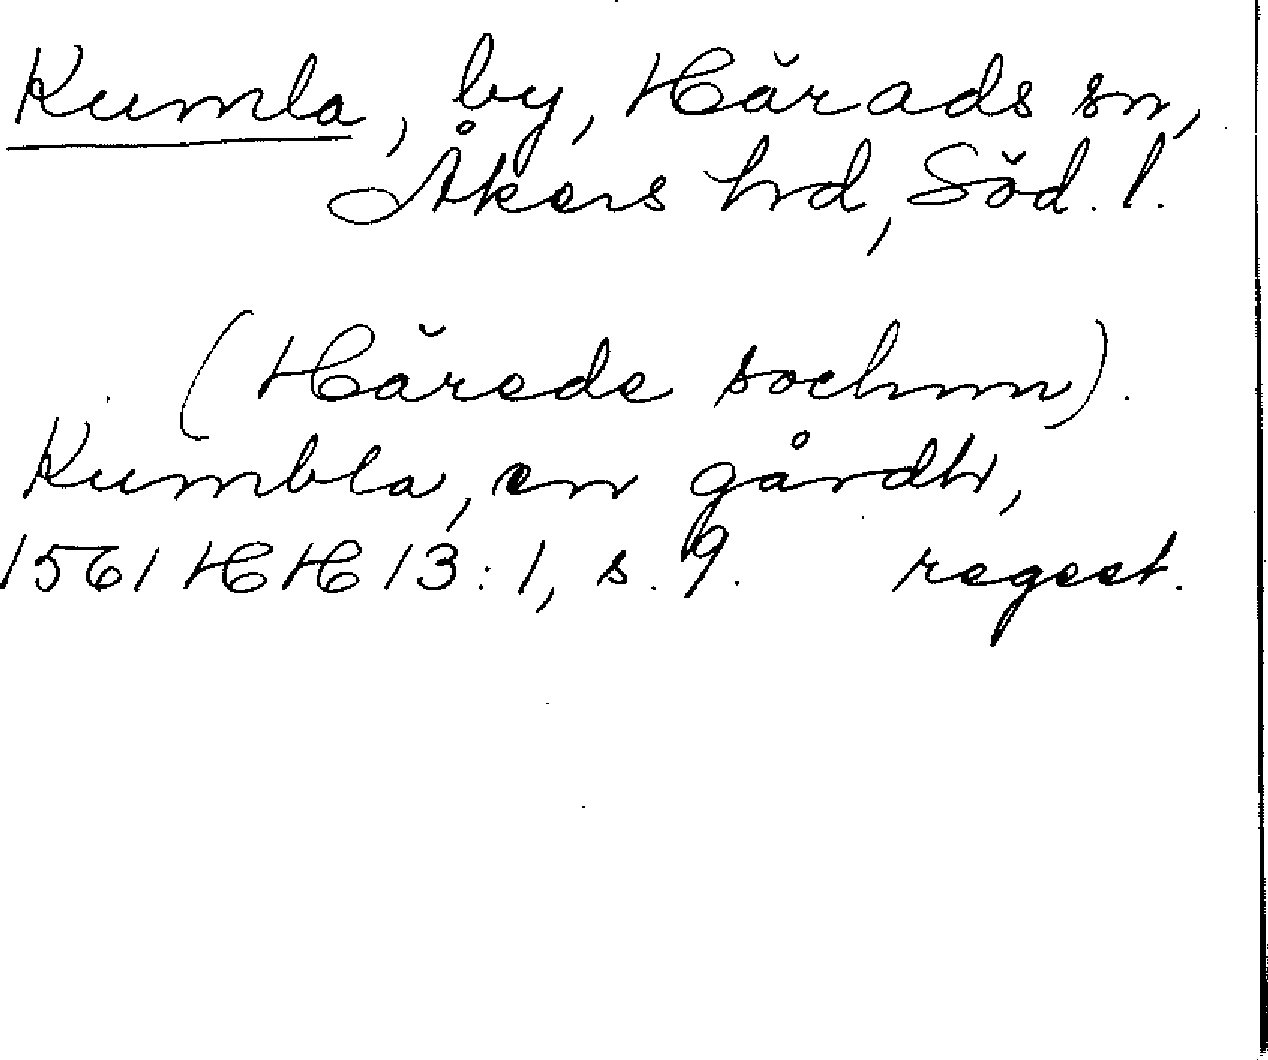 Kumla, by, Härads sn,
Åkers hrd, Söd. l.
(Härede sochnn).
Kumbla, en gårdh,
1561 HH 13:1, s. 9. regest.